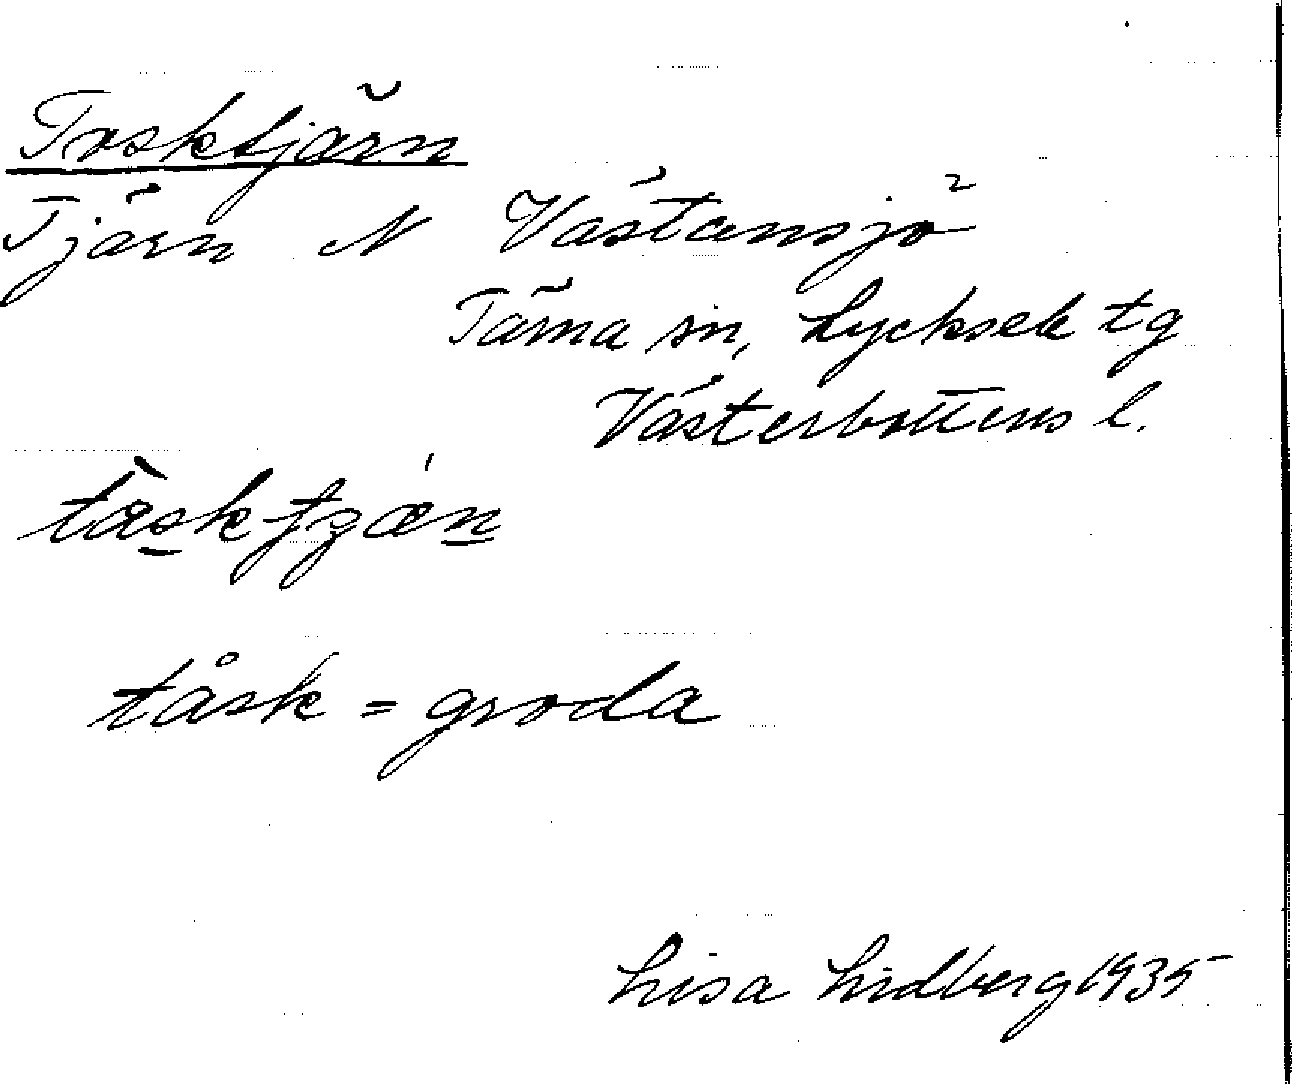 Tosktjärn
Tjärn N Västansjö
Tärna sn, Lycksele tg
Västerbottens l.
tåsk = groda
Lisa Lidberg 1935